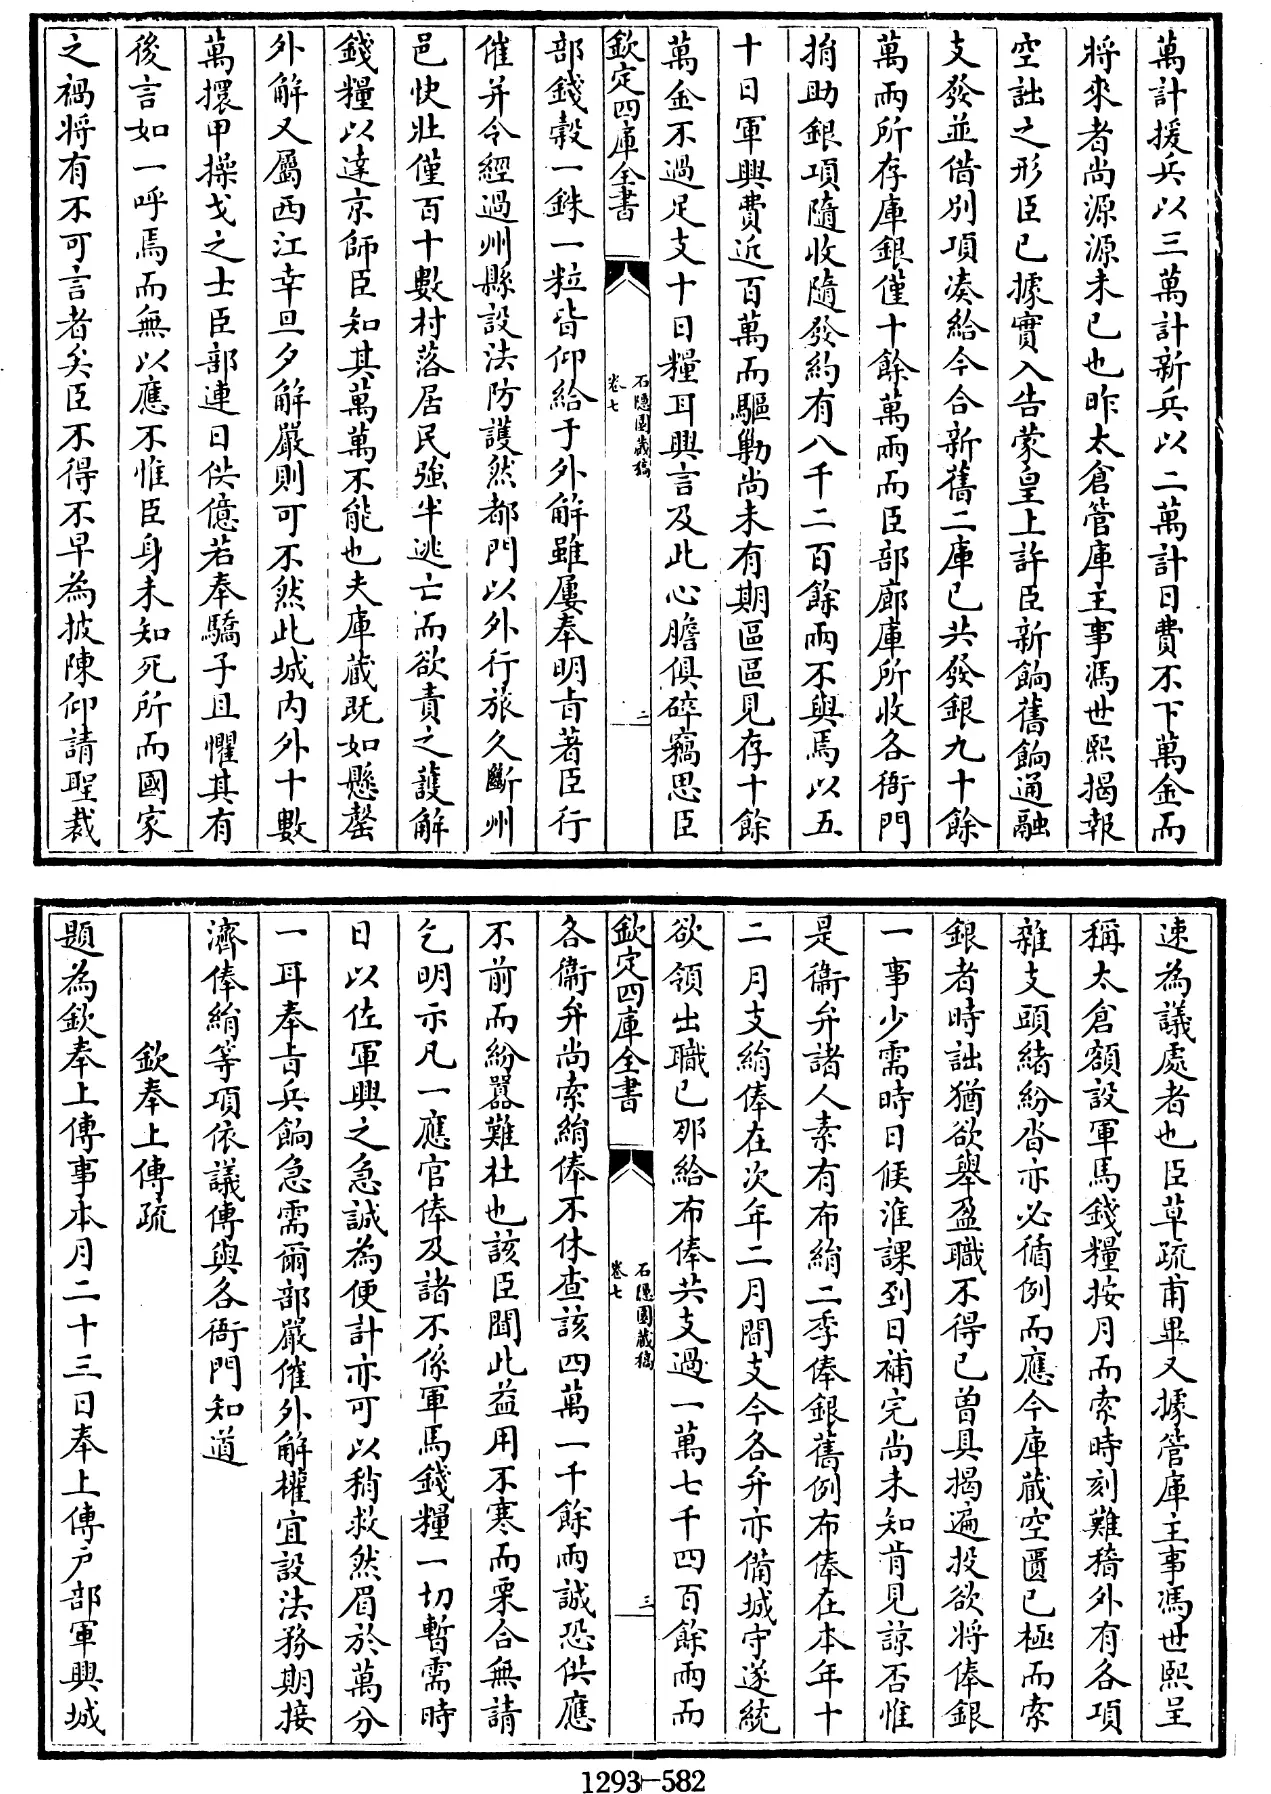 萬計援兵以三萬計新兵以二萬計日費不下萬金而
將來者尚源源未已也昨太倉管庫主事馮世熙揭報
空詘之形臣已據實入告蒙皇上許臣新餉舊餉通融
支發並借別項湊給今合新舊二庫已共發銀九十餘
萬兩所存庫銀僅十餘萬兩而臣部廊庫所收各衙門
捐助銀項隨收隨發約有八千二百餘兩不與焉以五
十日軍興費近百萬而驅勦尚未有期區區見存十餘
萬金不過足支十日糧耳興言及此心膽俱碎竊思臣
欽定四庫全書
石隱園藏稿
卷七
二
部錢穀一銖一粒皆仰給于外解雖屢奉明旨著臣行
催并令經過州縣設法防護然都門以外行旅久斷州
邑快壯僅百十數村落居民強半逃亡而欲責之護解
錢糧以達京師臣知其萬萬不能也夫庫藏既如懸罄
外解又屬西江幸旦夕解嚴則可不然此城內外十數
萬擐甲操戈之士臣部連日供億若奉驕子且懼其有
後言如一呼焉而無以應不惟臣身未知死所而國家
之禍將有不可言者矣臣不得不早為披陳仰請聖裁
速為議處者也臣草疏甫畢又據管庫主事馮世熙呈
稱太倉額設軍馬錢糧按月而索時刻難稽外有各項
雜支頭緒紛沓亦必循例而應今庫藏空匱已極而索
銀者時詘猶欲舉盈職不得已曾具揭遍投欲將俸銀
一事少需時日候淮課到日補完尚未知肯見諒否惟
是衛弁諸人素有布絹二季俸銀舊例布俸在本年十
二月支絹俸在次年二月間支今各弁亦備城守遂統
欲領出職已那給布俸共支過一萬七千四百餘兩而
欽定四庫全書
石隱園藏稿
卷七
三
各衛弁尚索絹俸不休查該四萬一千餘兩誠恐供應
不前而紛囂難杜也該臣聞此益用不寒而栗合無請
乞明示凡一應官俸及諸不係軍馬錢糧一切暫需時
日以佐軍興之急誠為便計亦可以稍救然眉於萬分
一耳奉旨兵餉急需爾部嚴催外解權宜設法務期接
濟俸絹等項依議傳與各衙門知道
欽奉上傳疏
題為欽奉上傳事本月二十三日奉上傳戶部軍興城
1293-582